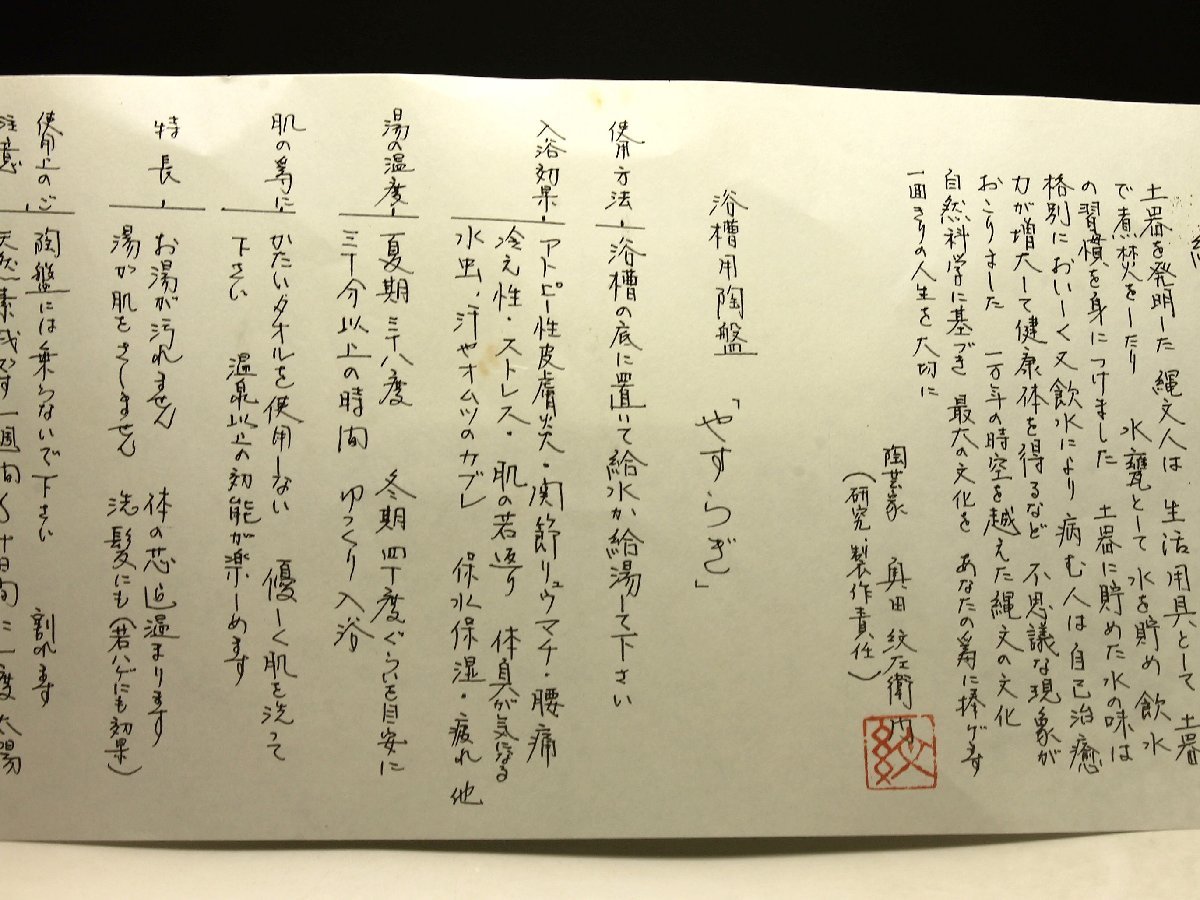 土器を発明した縄文人は 生活用具として 土器
で煮焚をしたり 水甕として水を貯め飲水
の習慣を身につけました 土器に貯めた水の味は
格別においしく又飲水により病む人は自己治癒
力が増大して健康体を得るなど 不思議な現象が
おこりました 一万年の時空を越えた縄文の文化
自然科学に基づき 最大の文化を あなたの為に捧げます
一回きりの人生を大切に
陶芸家 奥田 紋左衛門
(研究、製作責任)
紋
浴槽用陶盤 「やすらぎ」
使用方法、浴槽の底に置いて給水か給湯して下さい
入浴効果、アトピー性皮膚炎・関節リュウマチ・腰痛
冷え性・ストレス・肌の若返り 体臭が気になる
水虫、汗やオムツのカブレ 保水保湿・疲れ 他
湯の温度、夏期 三十八度 冬期 四十度ぐらいを目安に
三十分以上の時間 ゆっくり入浴
肌の為に、かたいタオルを使用しない 優しく肌を洗って
下さい 温泉以上の効能が楽しめます
特長、お湯が汚れません 体の芯迄温まります
湯が肌をさしません 洗髪にも(若ハゲにも効果)
使用上のご 陶盤には乗らないで下さい 割れます
注意、天然素成です 一週間から十日間に一度太陽